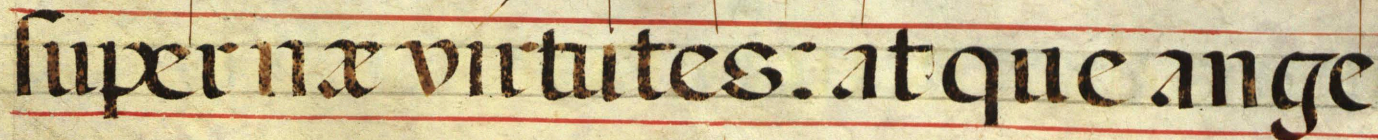 ſupernæ virtutes: atque ange